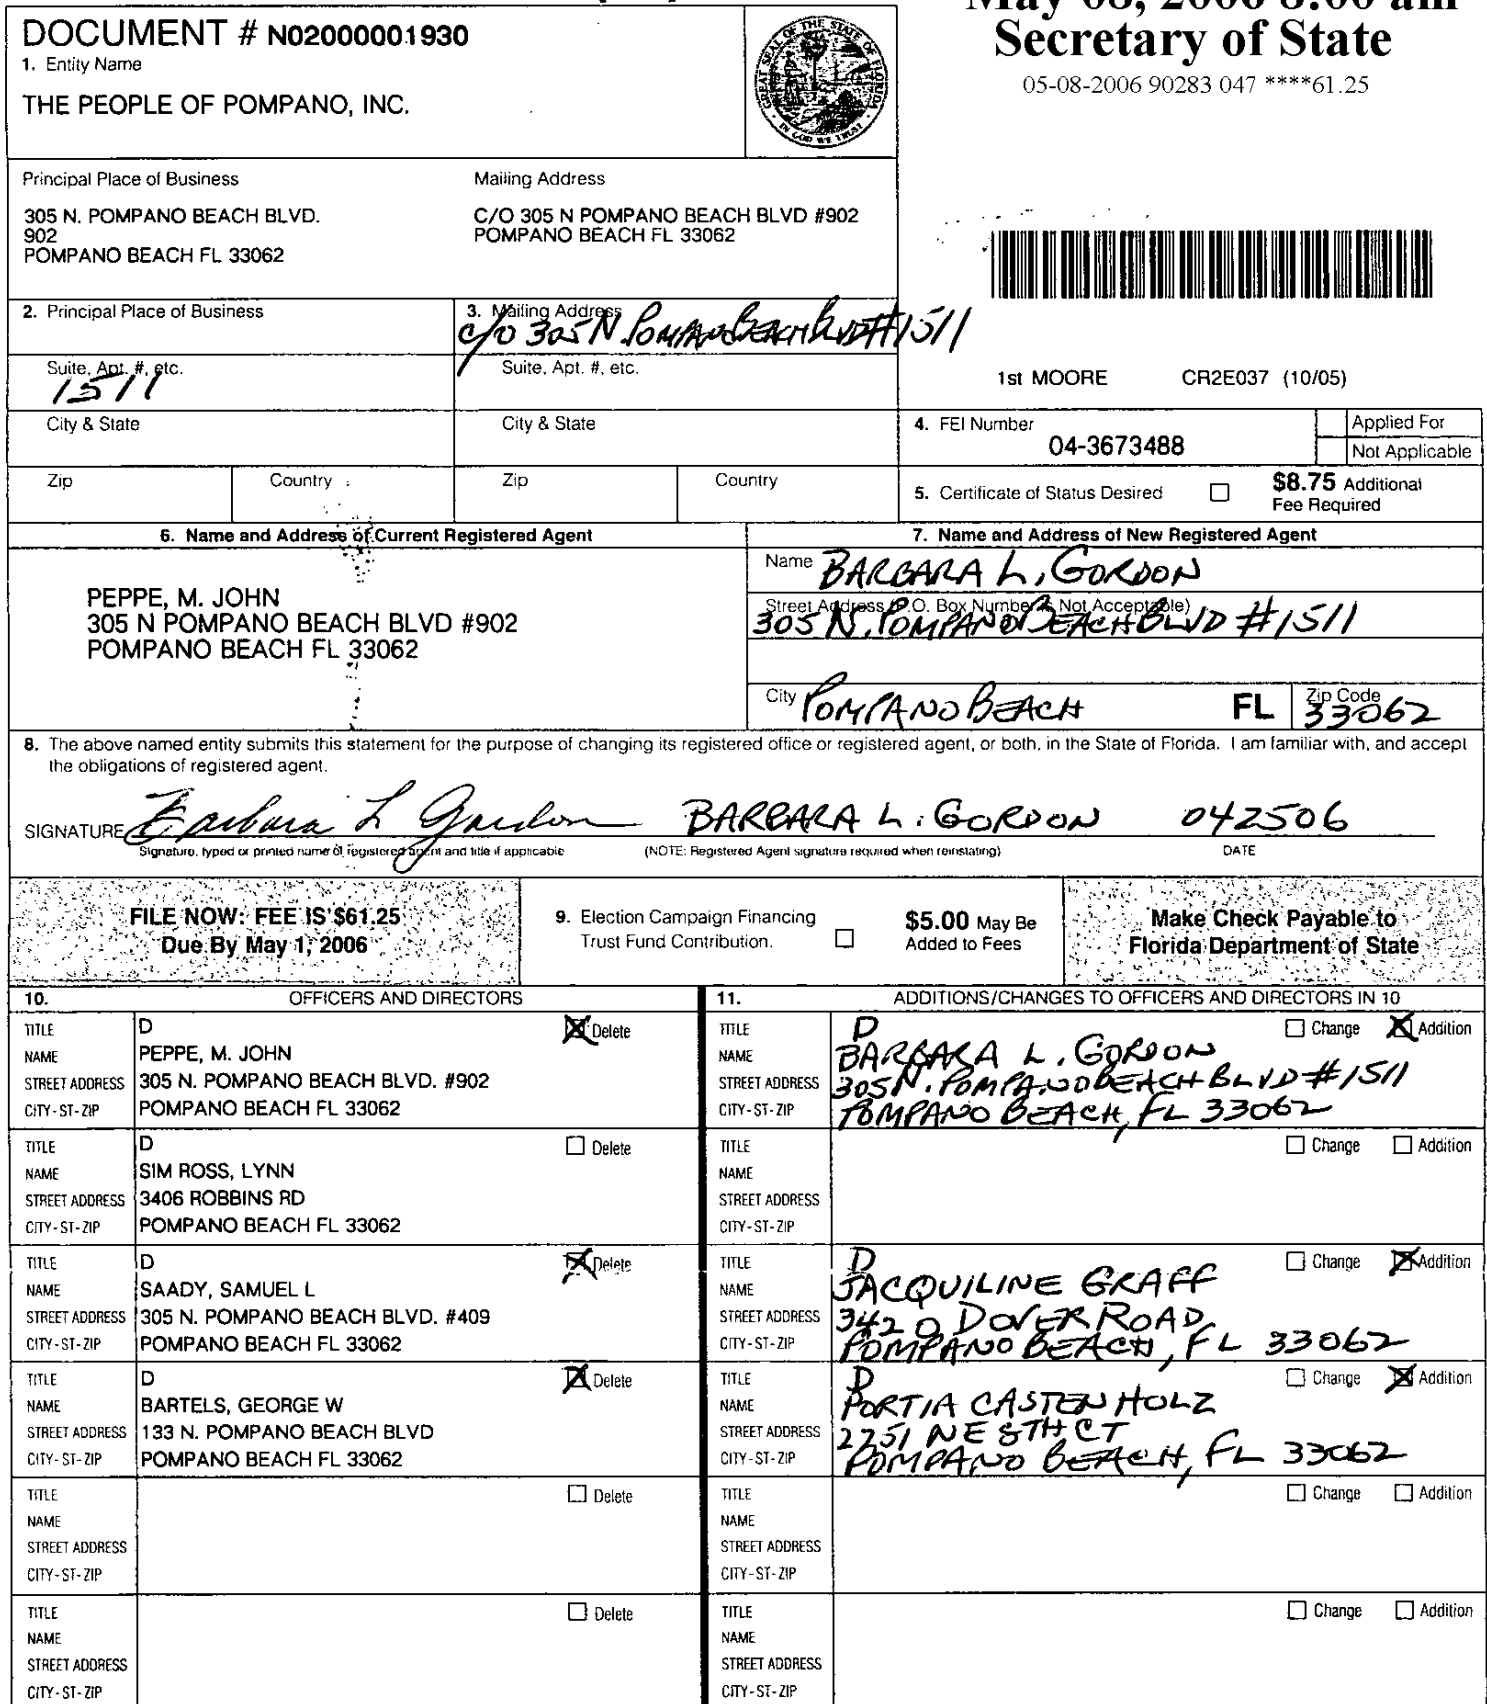 DOCUMENT # N02000001930
1. Entity Name
THE PEOPLE OF POMPANO, INC.
GREAT SEAL OF THE STATE OF FLORIDA
IN GOD WE TRUST
May 08, 2006 8:00 am
Secretary of State
05-08-2006 90283 047 ****61.25
Principal Place of Business
305 N. POMPANO BEACH BLVD.
902
POMPANO BEACH FL 33062
Mailing Address
C/O 305 N POMPANO BEACH BLVD #902
POMPANO BEACH FL 33062
2. Principal Place of Business
3. Mailing Address
c/o 305 N. POMPANO BEACH BLVD #1511
Suite, Apt. #, etc.
1511
Suite, Apt. #, etc.
1st MOORE CR2E037 (10/05)
City & State
City & State
4. FEI Number
04-3673488
Applied For
Not Applicable
Zip
Country
Zip
Country
5. Certificate of Status Desired
$8.75 Additional
Fee Required
6. Name and Address of Current Registered Agent
PEPPE, M. JOHN
305 N POMPANO BEACH BLVD #902
POMPANO BEACH FL 33062
7. Name and Address of New Registered Agent
Name BARBARA L. GORDON
Street Address (P.O. Box Number is Not Acceptable)
305 N. POMPANO BEACH BLVD #1511
City POMPANO BEACH FL Zip Code 33062
8. The above named entity submits this statement for the purpose of changing its registered office or registered agent, or both, in the State of Florida. I am familiar with, and accept
the obligations of registered agent.
SIGNATURE Barbara L Gordon BARBARA L. GORDON 042506
Signature, typed or printed name of registered agent and title if applicable (NOTE: Registered Agent signature required when reinstating) DATE
FILE NOW: FEE IS $61.25
Due By May 1, 2006
9. Election Campaign Financing
Trust Fund Contribution.
$5.00 May Be
Added to Fees
Make Check Payable to
Florida Department of State
10. OFFICERS AND DIRECTORS
TITLE D Delete
NAME PEPPE, M. JOHN
STREET ADDRESS 305 N. POMPANO BEACH BLVD. #902
CITY-ST-ZIP POMPANO BEACH FL 33062
TITLE D Delete
NAME SIM ROSS, LYNN
STREET ADDRESS 3406 ROBBINS RD
CITY-ST-ZIP POMPANO BEACH FL 33062
TITLE D Delete
NAME SAADY, SAMUEL L
STREET ADDRESS 305 N. POMPANO BEACH BLVD. #409
CITY-ST-ZIP POMPANO BEACH FL 33062
TITLE D Delete
NAME BARTELS, GEORGE W
STREET ADDRESS 133 N. POMPANO BEACH BLVD
CITY-ST-ZIP POMPANO BEACH FL 33062
TITLE Delete
NAME
STREET ADDRESS
CITY-ST-ZIP
TITLE Delete
NAME
STREET ADDRESS
CITY-ST-ZIP
11. ADDITIONS/CHANGES TO OFFICERS AND DIRECTORS IN 10
TITLE D Change Addition
NAME BARBARA L. GORDON
STREET ADDRESS 305 N. POMPANO BEACH BLVD #1511
CITY-ST-ZIP POMPANO BEACH, FL 33062
TITLE Change Addition
NAME
STREET ADDRESS
CITY-ST-ZIP
TITLE D Change Addition
NAME JACQUILINE GRAFF
STREET ADDRESS 3420 DOVER ROAD
CITY-ST-ZIP POMPANO BEACH, FL 33062
TITLE D Change Addition
NAME PORTIA CASTENHOLZ
STREET ADDRESS NE CT
CITY-ST-ZIP POMPANO BEACH, FL 33062
TITLE Change Addition
NAME
STREET ADDRESS
CITY-ST-ZIP
TITLE Change Addition
NAME
STREET ADDRESS
CITY-ST-ZIP